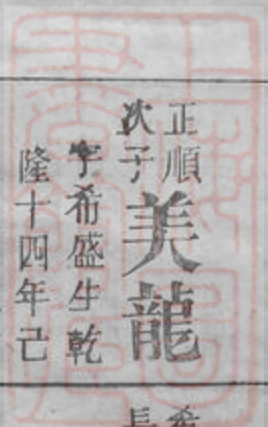 正順
次子
美龍
字希盛生乾
隆十四年己
希
長